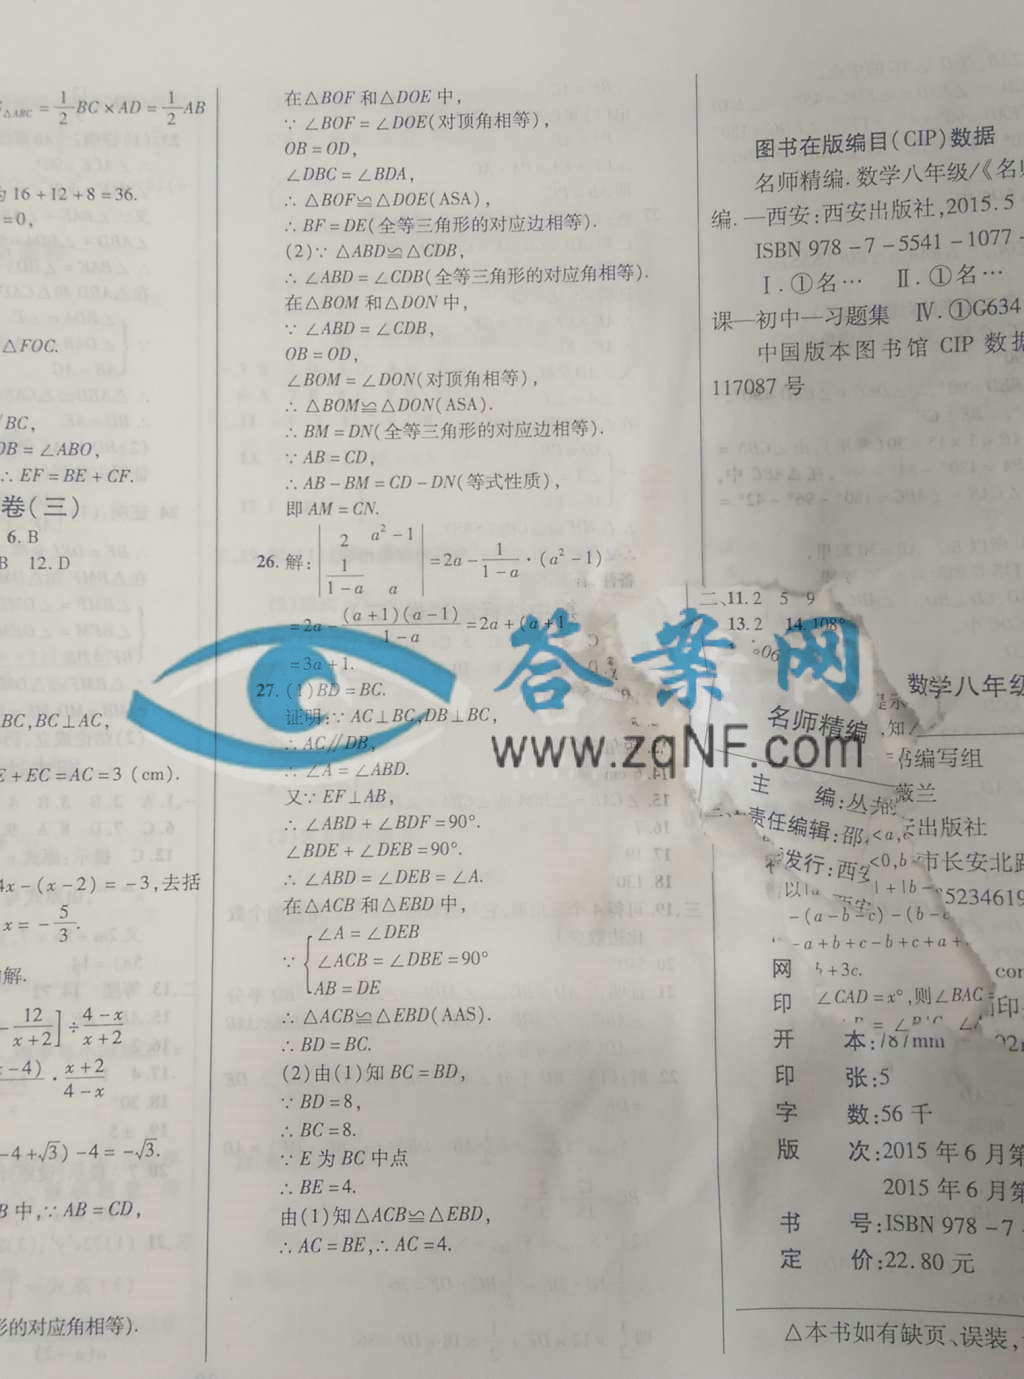 S△ABC = 1/2 BC × AD = 1/2 AB
为 16 + 12 + 8 = 36.
= 0,
△FOC.
∥BC,
OB = ∠ABO,
∴ EF = BE + CF.
卷(三)
6. B
B 12. D
BC, BC⊥AC,
E + EC = AC = 3 (cm).
4x - (x - 2) = -3, 去括
x = -5/3.
解.
- 12/(x+2)] ÷ (4-x)/(x+2)
x-4) · (x+2)/(4-x)
-4 + √3) - 4 = -√3.
B 中, ∵ AB = CD,
形的对应角相等).
在△BOF 和△DOE 中,
∵ ∠BOF = ∠DOE(对顶角相等),
OB = OD,
∠DBC = ∠BDA,
∴ △BOF≌△DOE(ASA),
∴ BF = DE(全等三角形的对应边相等).
(2)∵ △ABD≌△CDB,
∴ ∠ABD = ∠CDB(全等三角形的对应角相等).
在△BOM 和△DON 中,
∵ ∠ABD = ∠CDB,
OB = OD,
∠BOM = ∠DON(对顶角相等),
∴ △BOM≌△DON(ASA).
∴ BM = DN(全等三角形的对应边相等).
∵ AB = CD,
∴ AB - BM = CD - DN(等式性质),
即 AM = CN.
26. 解: | 2 a² - 1 ; 1/(1-a) a | = 2a - 1/(1-a) · (a² - 1)
= 2a - (a+1)(a-1)/(1-a) = 2a + (a + 1
= 3a + 1.
27. (1)BD = BC.
证明:∵ AC⊥BC, DB⊥BC,
∴ AC∥DB,
∴ ∠A = ∠ABD.
又∵ EF⊥AB,
∴ ∠ABD + ∠BDF = 90°.
∠BDE + ∠DEB = 90°.
∴ ∠ABD = ∠DEB = ∠A.
在△ACB 和△EBD 中,
∠A = ∠DEB
∵ { ∠ACB = ∠DBE = 90°
AB = DE
∴ △ACB≌△EBD(AAS).
∴ BD = BC.
(2)由(1)知 BC = BD,
∵ BD = 8,
∴ BC = 8.
∵ E 为 BC 中点
∴ BE = 4.
由(1)知△ACB≌△EBD,
∴ AC = BE, ∴ AC = 4.
答案网
www.zqNF.com
图书在版编目(CIP)数据
名师精编. 数学八年级/《名
编. —西安:西安出版社, 2015. 5
ISBN 978 - 7 - 5541 - 1077 -
Ⅰ. ①名… Ⅱ. ①名…
课—初中—习题集 Ⅳ. ①G634
中国版本图书馆 CIP 数据
117087 号
二、11. 2 5 9
13. 2 14. 108°
数学八年级
名师精编
编写组
主 编:丛
薇兰
责任编辑:邵
出版社
发行:西安
市长安北路
5234619
-(a-b-c)-(b-c
-a+b+c-b+c+a+
+3c.
网
com
∠CAD = x°, 则∠BAC =
印
开 本:787mm
印 张:5
字 数:56 千
版 次:2015 年 6 月第
2015 年 6 月第
书 号:ISBN 978 - 7
定 价:22. 80 元
△本书如有缺页、误装,